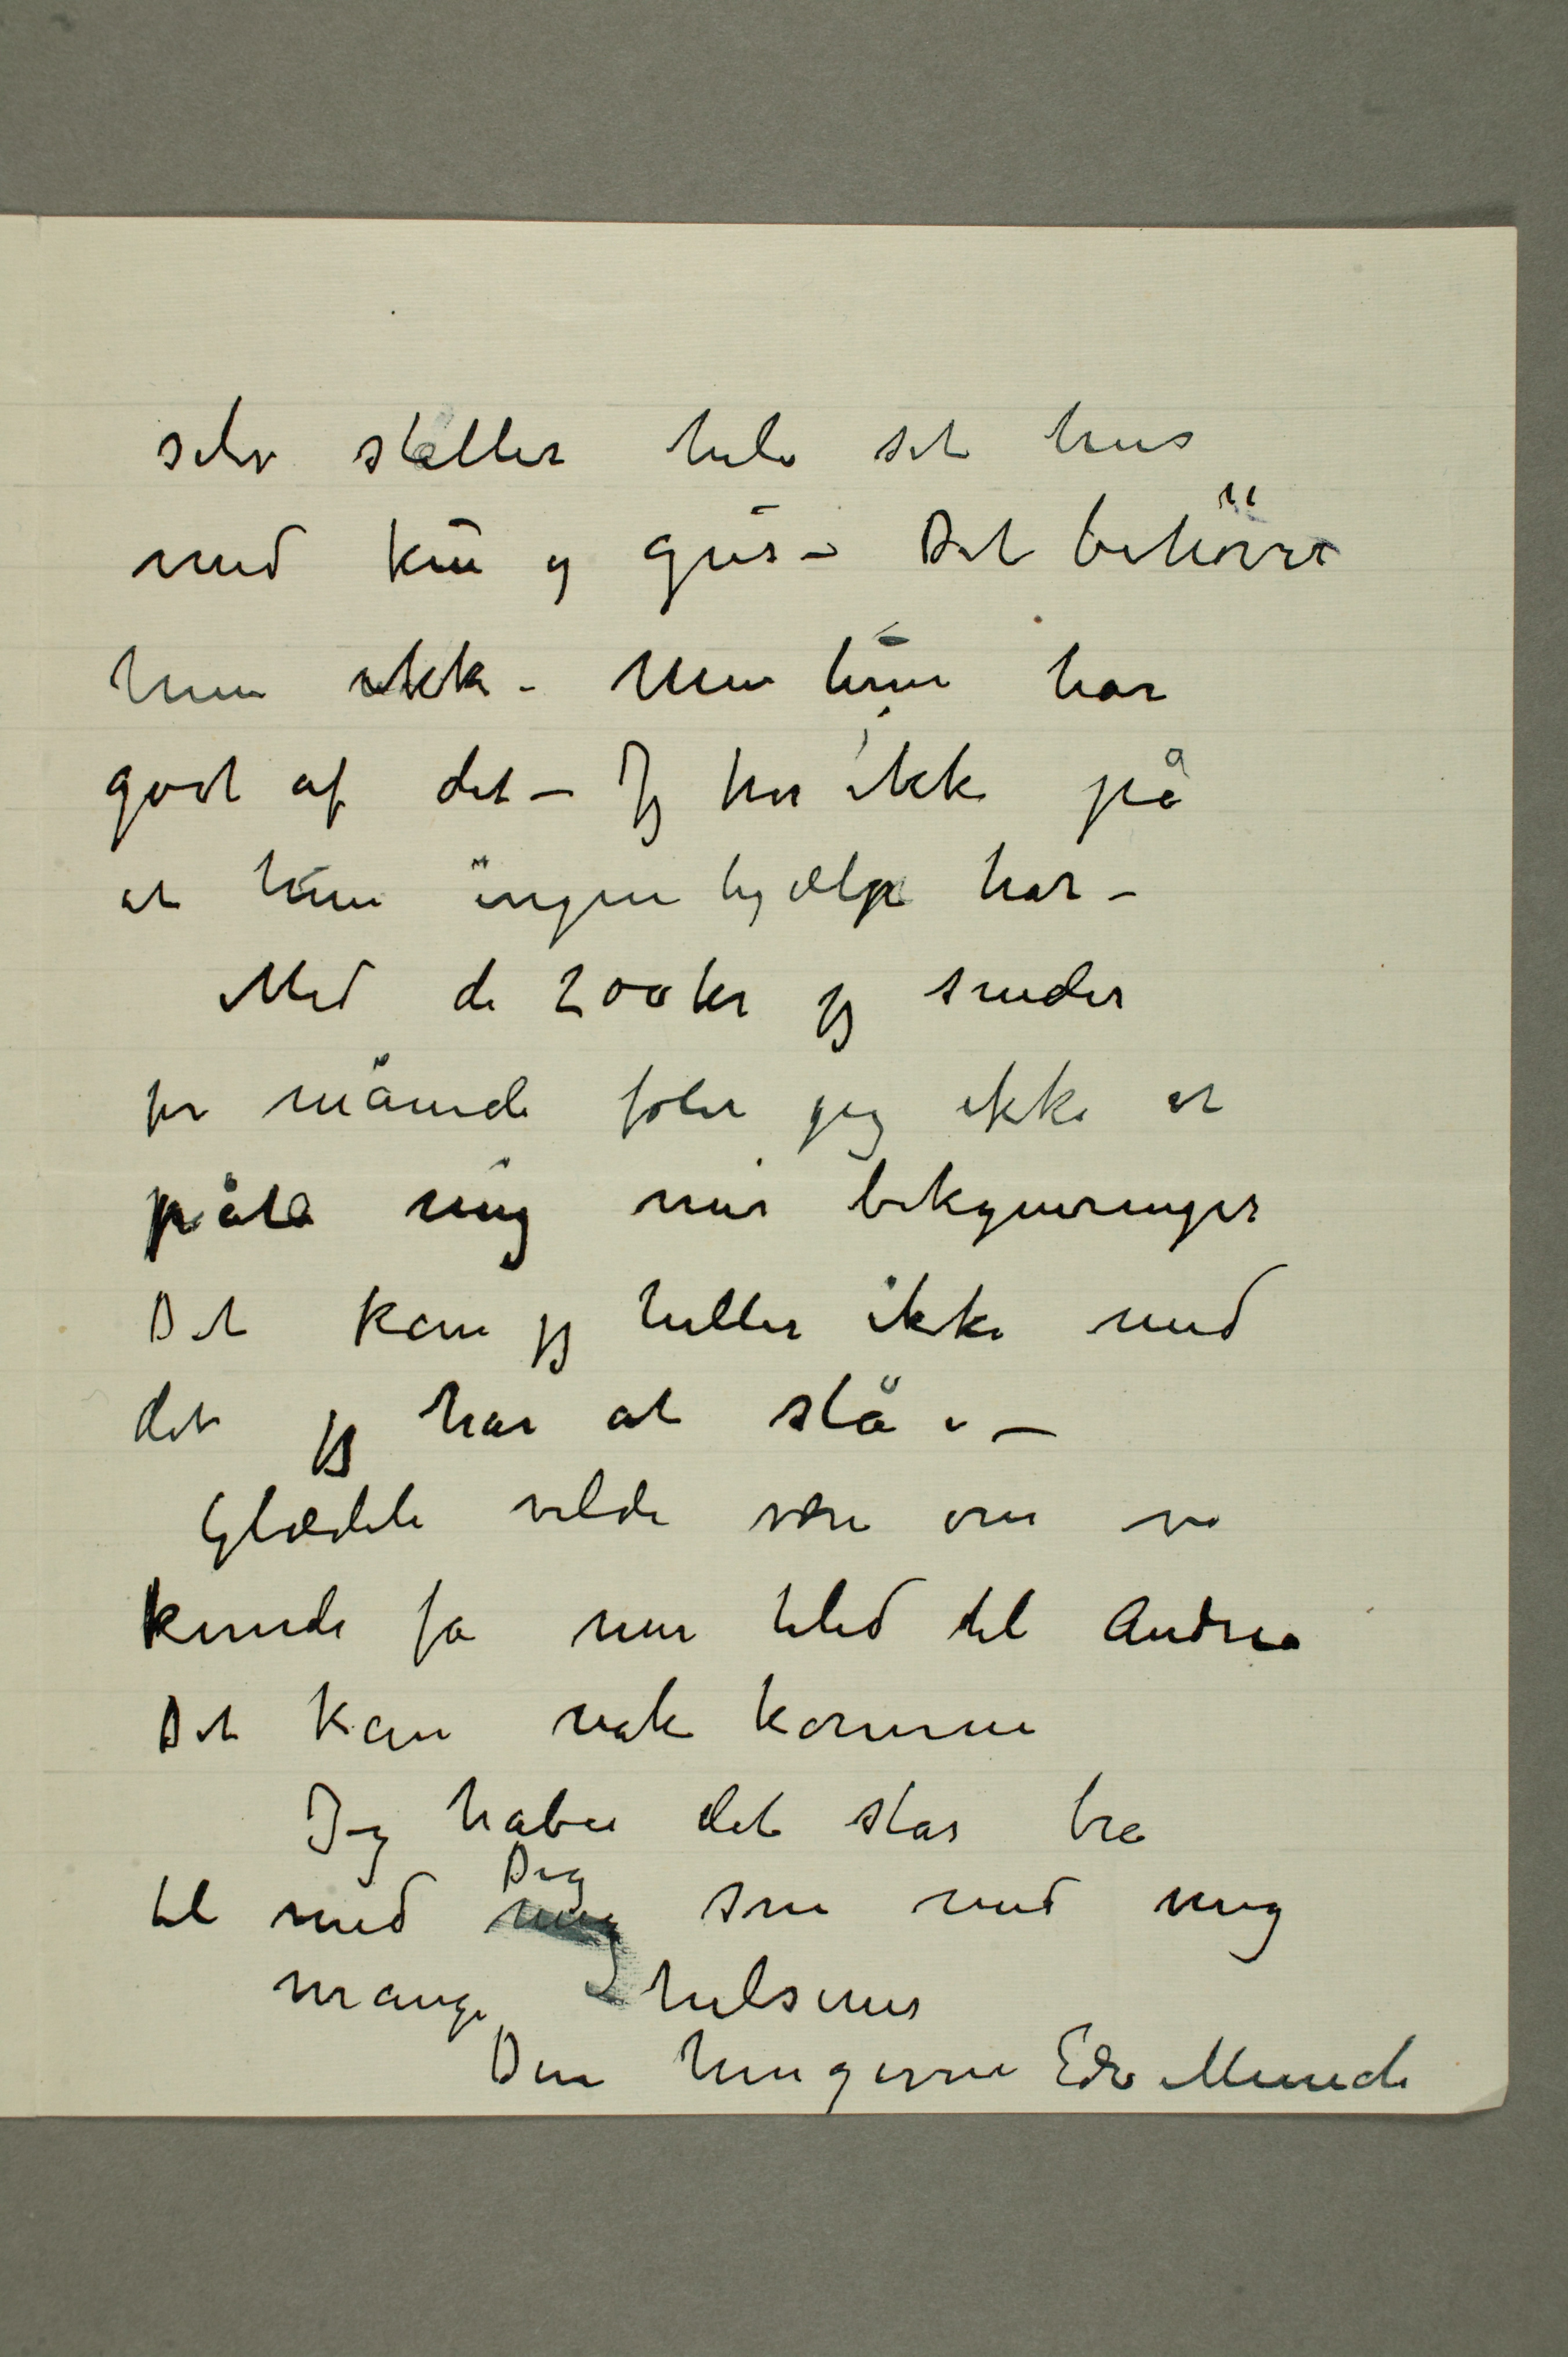 selv stæller hele sit hus
med ku og gris – Det behöver
hun ikke – Men hun har
godt af det – Jeg tror ikke på
at hun ingen hjælp har –
Med de 200 kr jeg sender
pr måned föler jeg ikke at
påta mig mer bekymringer
Det kan jeg heller ikke med
det jeg har at stå i –
Glædeli vilde være om vi
kunde få mer tilid til Andrea
Det kan nok komme
Jeg haber det står bra
til med mig Dig som med mig
mange hilsener
Din hengivne Edv Munch